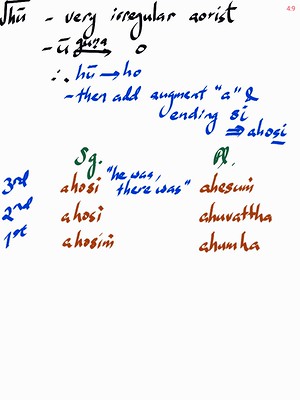 49
√hū - very irregular aorist
- ū guṇa → o
∴ hū → ho
- then add augment "a" &
ending si
⇒ ahosi
Sg. Pl.
3rd ahosi "he was, there was" ahesuṁ
2nd ahosi ahuvattha
1st ahosiṁ ahumha